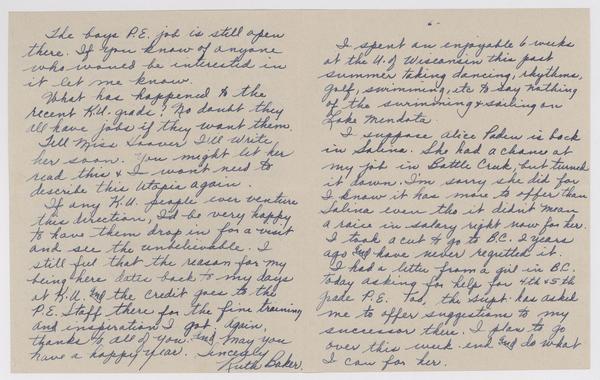 The boys P.E. job is still open
there. If you know of anyone
who would be interested in
it let me know.
What has happened to the
recent K.U. grads? No doubt they
all have jobs if they want them.
Tell Miss Hoover I'll write
her soon. You might let her
read this & I wont need to
describe this Utopia again.
If any K.U. people ever venture
this direction, I'd be very happy
to have them drop in for a visit
and see the unbelievable. I
still feel that the reason for my
being here dates back to my days
at K.U. and the credit goes to the
P.E. Staff there for the fine training
and inspiration I got. Again,
thanks to all of you and may you
have a happy year. Sincerely
Ruth Baker.
I spent an enjoyable 6 weeks
at the U. of Wisconsin this past
summer taking dancing, rhythms,
golf, swimming, etc to say nothing
of the swimming & sailing on
Lake Mendota.
I suppose Alice is back
in Salina. She had a chance at
my job in Battle Creek, but turned
it down. I'm sorry she did for
I know it has more to offer than
Salina even tho it didn't mean
a raise in salary right now for her.
I took a cut to go to B.C. 2 years
ago and have never regretted it.
I had a letter from a girl in B.C.
today asking for help for 4th & 5th
grade P.E. Too, the supt. has asked
me to offer suggestions to my
successor there. I plan to go
over this week-end and do what
I can for her.